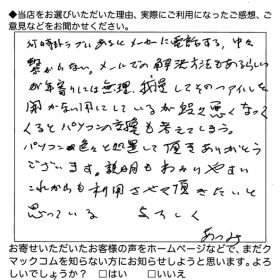 ◆当店をお選びいただいた理由、実際にご利用になったご感想、ご
意見などをお聞かせください。
時トラブルあるとメーカーに電話する、中々
繋がらない。メールでの解決方法もあるらしい
が年寄りには無理、我慢してそのファイルを
開かない用にしているが段々悪くなって
くるとパソコンの交換も考えてしまう。
パソコン色々と処置して頂きありがとう
ございます。説明もわかりやすい
これからも利用させて頂きたいと
思っている よろしく
お寄せいただいたお客様の声をホームページなどで、まだク
マックコムを知らない方にお知らせしようと思います。よろ
しいでしょうか? □はい □いいえ